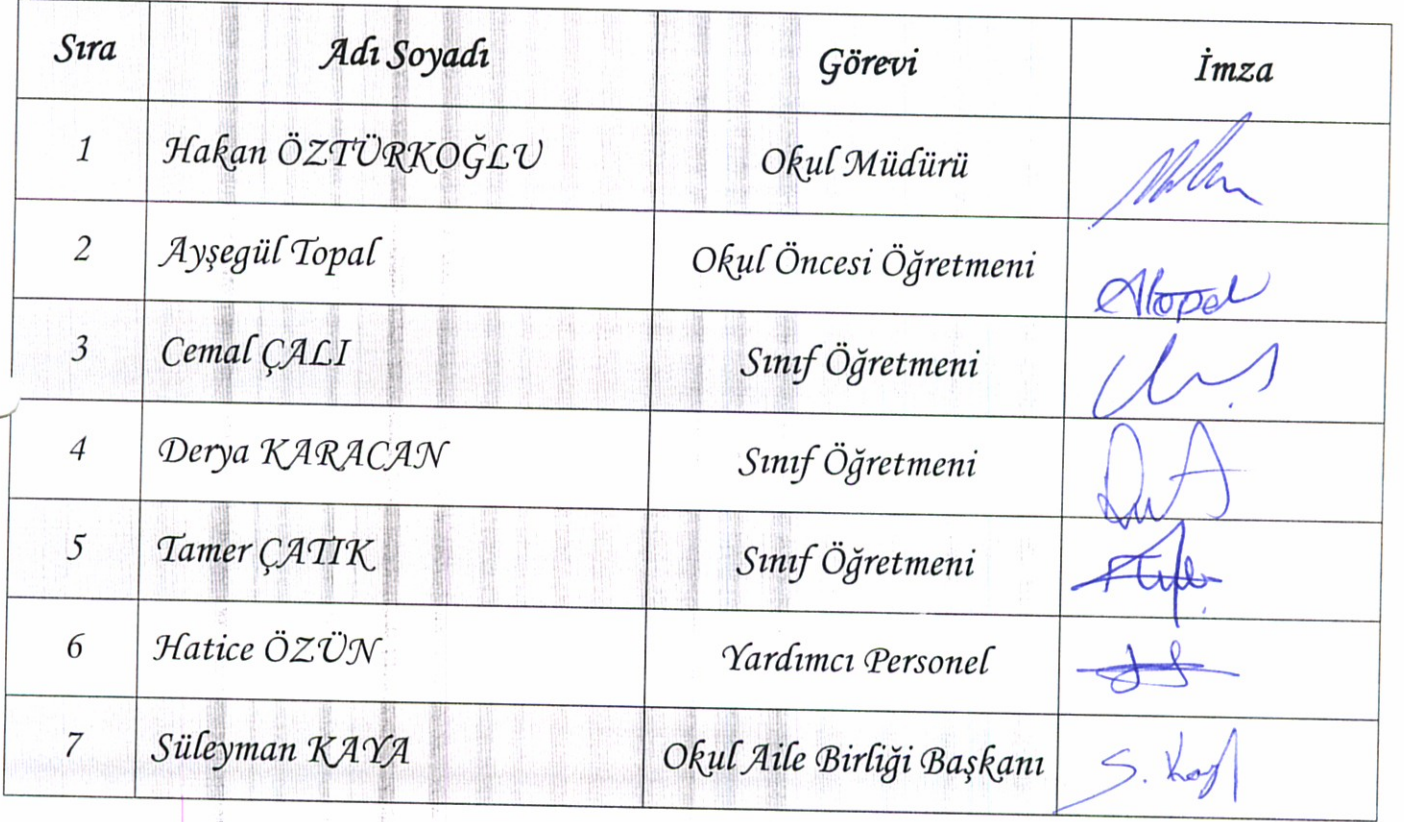 Sıra Adı Soyadı Görevi İmza
1 Hakan ÖZTÜRKOĞLU Okul Müdürü
2 Ayşegül Topal Okul Öncesi Öğretmeni
3 Cemal ÇALI Sınıf Öğretmeni
4 Derya KARACAN Sınıf Öğretmeni
5 Tamer ÇATIK Sınıf Öğretmeni
6 Hatice ÖZÜN Yardımcı Personel
7 Süleyman KAYA Okul Aile Birliği Başkanı